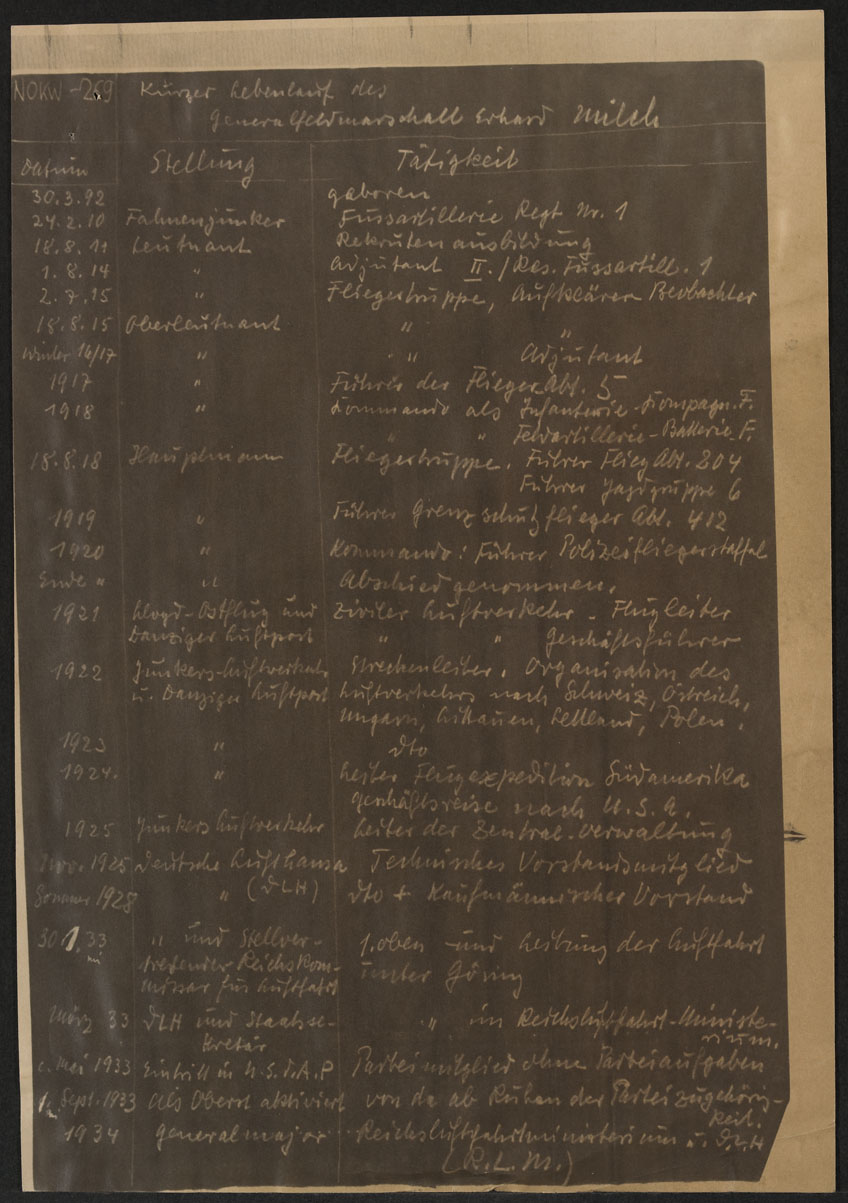 NOKW-269 Kurzer Lebenslauf des
Generalfeldmarschall Erhard Milch
Datum Stellung Tätigkeit
30.3.92 geboren
24.2.10 Fahnenjunker Fussartillerie Regt Nr. 1
18.8.11 Leutnant Rekrutenausbildung
1.8.14 " Adjutant II./Res. Fussartill. 1
2.7.15 " Fliegertruppe, Aufklärer Beobachter
18.8.15 Oberleutnant " "
Winter 16/17 " " Adjutant
1917 " Führer der Flieger Abt. 5
1918 " Kommando als Infanterie-Kompagn.F.
" " Feldartillerie-Batterie F.
18.8.18 Hauptmann Fliegertruppe. Führer Flieg Abt. 204
Führer Jagdgruppe 6
1919 " Führer Grenzschutzflieger Abt. 412
1920 " Kommando: Führer Polizeifliegerstaffel
Ende " " Abschied genommen.
1921 Lloyd-Ostflug und Ziviler Luftverkehr - Flugleiter
Danziger Luftpost " " Geschäftsführer
1922 Junkers-Luftverkehr Streckenleiter. Organisation des
u. Danziger Luftpost Luftverkehrs nach Schweiz, Östreich,
Ungarn, Litauen, Lettland, Polen.
1923 " dto
1924. " Leiter Flugexpedition Südamerika
Geschäftsreise nach U.S.A.
1925 Junkers Luftverkehr Leiter der Zentral-Verwaltung
Nov. 1925 Deutsche Lufthansa Technisches Vorstandsmitglied
Sommer 1928 " (DLH) dto + Kaufmännischer Vorstand
30.1.33 " und Stellver- 1. oben - und Leitung der Luftfahrt
tretender Reichskom- unter Göring
missar für Luftfahrt
März 33 DLH und Staatsse- " im Reichsluftfahrt-Ministe-
kretär rium.
c. Mai 1933 Eintritt in N.S.D.A.P Parteimitglied ohne Parteiaufgaben
Sept. 1933 als Oberst aktiviert von da ab Ruhen der Parteizugehörig-
keit.
1934 Generalmajor Reichsluftfahrtministerium u. D.L.H
(R.L.M.)